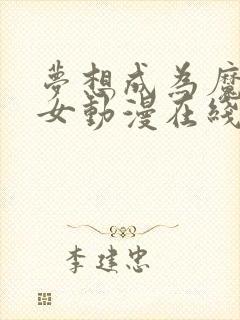 夢想成為魔
女動漫在綫
李建忠